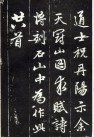 道士祝丹陽示余
天冠山圖求賦詩
將刻石山中為作此
廿八首